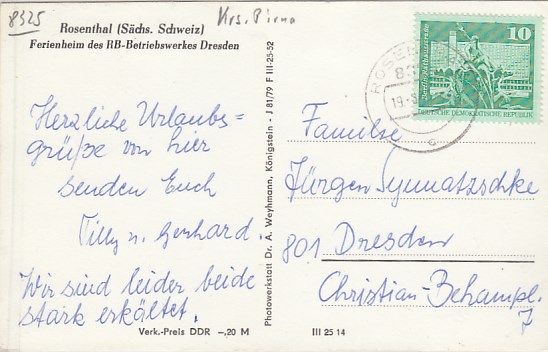 8325
Krs. Pirna
Rosenthal (Sächs. Schweiz)
Ferienheim des RB-Betriebswerkes Dresden
Herzliche Urlaubs=
grüße von hier
senden Euch
Tilly u. Gerhard.
Wir sind leider beide
stark erkältet.
Verk.-Preis DDR –,20 M
III 25 14
Photowerkstatt Dr. A. Weyhmann, Königstein - J 81/79 F III-25-52
10
Berlin Rathausstraße
DEUTSCHE DEMOKRATISCHE REPUBLIK
ROSEN
83
19.-8
c
Familie
Jürgen
801 Dresden
Christian-Behampl.
7